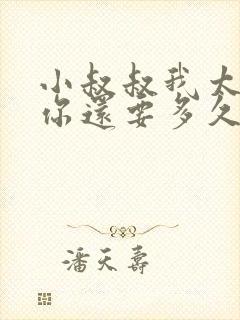 小叔叔我大
你還要多久
潘天壽